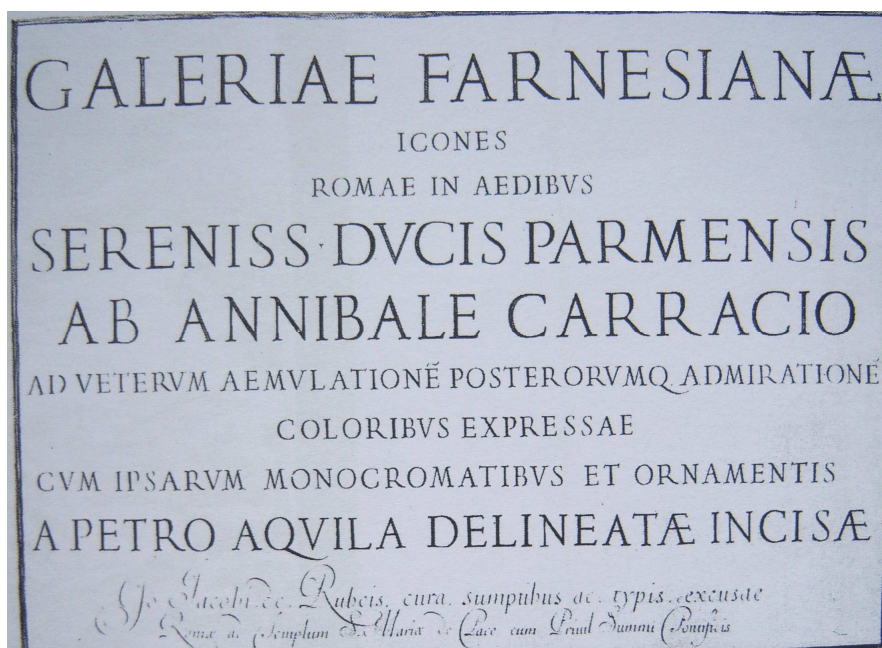 GALERIAE FARNESIANÆ
ICONES
ROMAE IN AEDIBVS
SERENISS · DVCIS PARMENSIS
AB ANNIBALE CARRACIO
AD VETERVM AEMVLATIONẼ POSTERORVMQ. ADMIRATIONẼ
COLORIBVS EXPRESSAE
CVM IPSARVM MONOCROMATIBVS ET ORNAMENTIS
A PETRO AQVILA DELINEATÆ INCISÆ
Jo Jacobi de Rubeis. cura. sumptibus ac. typis. excusae
Romæ ad Templum S. Mariæ de Pace cum Privil Summi Pontificis